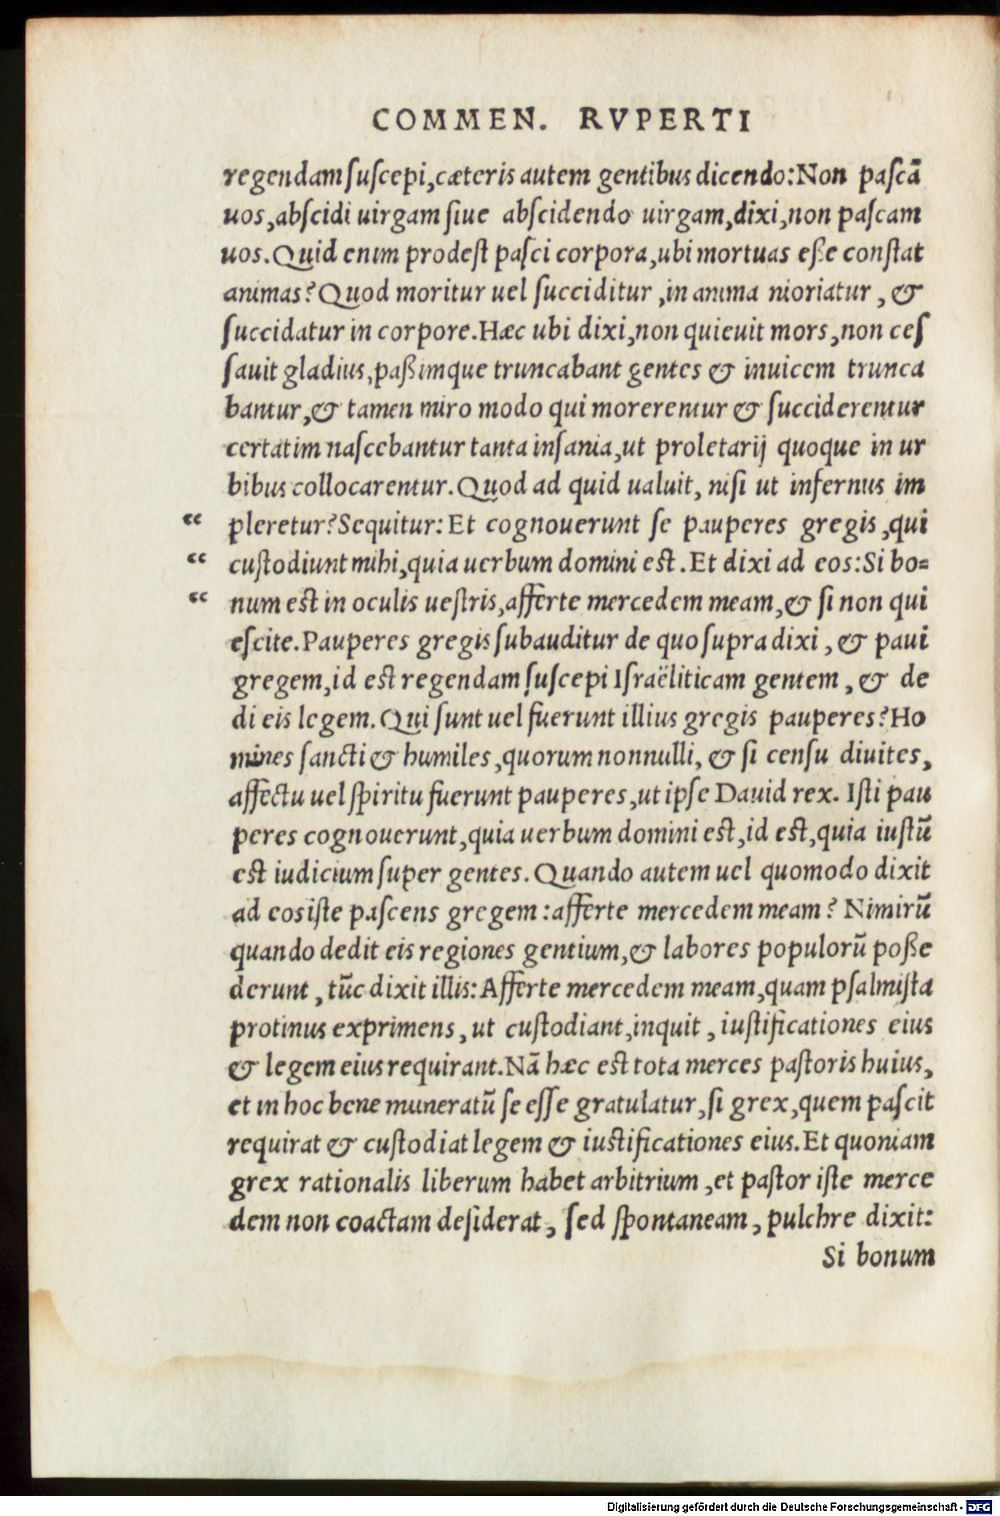 COMMEN. RVPERTI
regendam ſuſcepi,cæteris autem gentibus dicendo:Non paſcā
uos,abſcidi uirgam ſiue abſcidendo uirgam,dixi,non paſcam
uos.Quid enim prodeſt paſci corpora,ubi mortuas eße conſtat
animas?Quod moritur uel ſucciditur,in anima nioriatur, &
ſuccidatur in corpore.Hæc ubi dixi,non quieuit mors,non ceſ
ſauit gladius,paßimque truncabant gentes & inuicem trunca
bantur,& tamen miro modo qui morerentur & ſucciderentur
certatim naſcebantur tanta inſania,ut proletarij quoque in ur
bibus collocarentur.Quod ad quid ualuit, niſi ut infernus im
“ pleretur?Sequitur:Et cognouerunt ſe pauperes gregis,qui
“ cuſtodiunt mihi,quia uerbum domini eſt.Et dixi ad eos:Si bo=
“ num eſt in oculis ueſtris,afferte mercedem meam,& ſi non qui
eſcite.Pauperes gregis ſubauditur de quo ſupra dixi, & paui
gregem,id eſt regendam ſuſcepi Iſraëliticam gentem, & de
di eis legem.Qui ſunt uel fuerunt illius gregis pauperes?Ho
mines ſancti & humiles,quorum nonnulli, & ſi cenſu diuites,
affectu uel ſpiritu fuerunt pauperes,ut ipſe Dauid rex. Iſti pau
peres cognouerunt,quia uerbum domini eſt,id eſt,quia iuſtū
eſt iudicium ſuper gentes.Quando autem uel quomodo dixit
ad eos iſte paſcens gregem:afferte mercedem meam? Nimirū
quando dedit eis regiones gentium,& labores populorū poße
derunt, tūc dixit illis:Afferte mercedem meam,quam pſalmiſta
protinus exprimens, ut cuſtodiant,inquit, iuſtificationes eius
& legem eius requirant.Nā hæc eſt tota merces paſtoris huius,
et in hoc bene muneratū ſe eſſe gratulatur,ſi grex,quem paſcit
requirat & cuſtodiat legem & iuſtificationes eius.Et quoniam
grex rationalis liberum habet arbitrium,et paſtor iſte merce
dem non coactam deſiderat, ſed ſpontaneam, pulchre dixit:
Si bonum
Digitalisierung gefördert durch die Deutsche Forschungsgemeinschaft - DFG